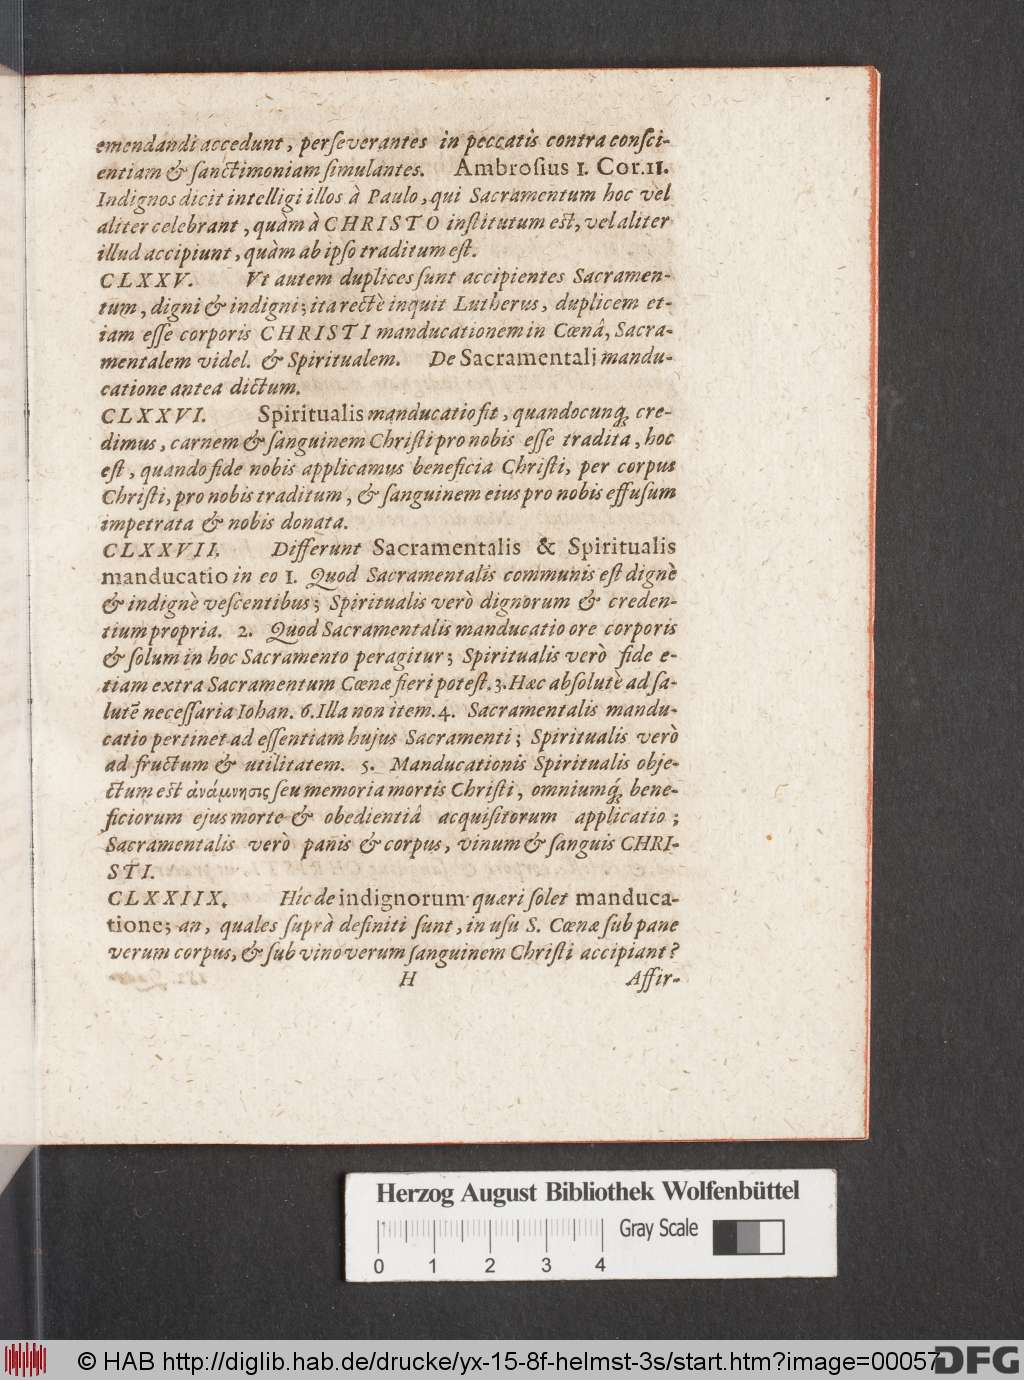 emendandi accedunt, perſeverantes in peccatis contra conſci-
entiam & ſanctimoniam ſimulantes. Ambroſius 1. Cor. 11.
Indignos dicit intelligi illos à Paulo, qui Sacramentum hoc vel
aliter celebrant, quàm à CHRISTO inſtitutum eſt, vel aliter
illud accipiunt, quàm ab ipſo traditum eſt.
CLXXV. Vt autem duplices ſunt accipientes Sacramen-
tum, digni & indigni; ita rectè inquit Lutherus, duplicem et-
iam eſſe corporis CHRISTI manducationem in Cœnâ, Sacra-
mentalem videl. & Spiritualem. De Sacramentali mandu-
catione antea dictum.
CLXXVI. Spiritualis manducatio fit, quandocunq; cre-
dimus, carnem & ſanguinem Chriſti pro nobis eſſe tradita, hoc
eſt, quando fide nobis applicamus beneficia Chriſti, per corpus
Chriſti, pro nobis traditum, & ſanguinem eius pro nobis effuſum
impetrata & nobis donata.
CLXXVII. Differunt Sacramentalis & Spiritualis
manducatio in eo 1. Quod Sacramentalis communis eſt dignè
& indignè veſcentibus; Spiritualis verò dignorum & creden-
tium propria. 2. Quod Sacramentalis manducatio ore corporis
& ſolum in hoc Sacramento peragitur; Spiritualis verò fide e-
tiam extra Sacramentum Cœnæ fieri poteſt. 3. Hæc abſolutè ad ſa-
lutē neceſſaria Iohan. 6. Illa non item. 4. Sacramentalis mandu-
catio pertinet ad eſſentiam hujus Sacramenti; Spiritualis verò
ad fructum & utilitatem. 5. Manducationis Spiritualis obje-
ctum eſt ἀνάμνησις ſeu memoria mortis Chriſti, omniumq́; bene-
ficiorum ejus morte & obedientiâ acquiſitorum applicatio;
Sacramentalis verò panis & corpus, vinum & ſanguis CHRI-
STI.
CLXXIIX. Hic de indignorum quæri ſolet manduca-
tione; an, quales ſuprà definiti ſunt, in uſu S. Cœnæ ſub pane
verum corpus, & ſub vino verum ſanguinem Chriſti accipiant?
H Affir-
Herzog August Bibliothek Wolfenbüttel
Gray Scale
0 1 2 3 4
© HAB http://diglib.hab.de/drucke/yx-15-8f-helmst-3s/start.htm?image=00057
DFG